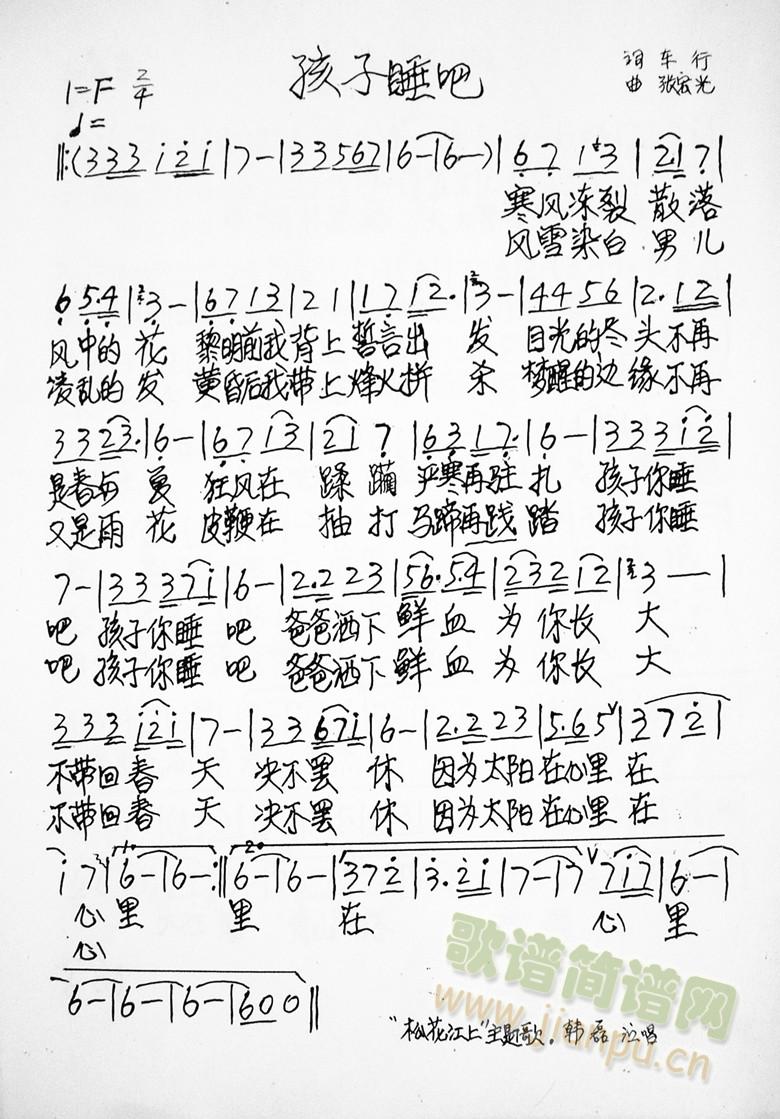 孩子睡吧
词 车行
曲 张宏光
1=F 2/4
♩=
‖:(3 3 3 i 2 i | 7 — | 3 3 5 6 7 | 6 — | 6 — ) | 6 7 1 3 | 2 1 7 |
寒风冻裂 散落
风雪染白 男儿
6 5·4 | 3 — | 6 7 1 3 | 2 1 | 1 7 1 2· | 3 — | 4 4 5 6 | 2· 1 2 |
风中的 花 黎明前我 背上 誓言出 发 目光的尽 头不再
凌乱的 发 黄昏后我 带上 烽火拼 杀 梦醒的边 缘不再
3 3 2 3· | 6 — | 6 7 1 3 | 2 1 7 | 6 3 1 7· | 6 — | 3 3 3 i 2 |
是春与 夏 狂风在 蹂躏 严寒再驻 扎 孩子你睡
又是雨 花 皮鞭在 抽打 马蹄再践 踏 孩子你睡
7 — | 3 3 3 7 i | 6 — | 2·2 2 3 | 5 6·5 4 | 2 3 2 1 2 | 3 — — |
吧 孩子你睡 吧 爸爸洒下 鲜血 为你长 大
吧 孩子你睡 吧 爸爸洒下 鲜血 为你长 大
3 3 3 i 2 i | 7 — | 3 3 6 7 i | 6 — | 2·2 2 3 | 5·6 5 ∨ | 3 7 2 |
不带回春 天 决不罢 休 因为太阳 在心里 在
不带回春 天 决不罢 休 因为太阳 在心里 在
i 7 | 1. 6 — | 6 — :‖ 2. 6 — | 6 — | 3 7 2 | 3·2 i | 7 — | 7 ∨ 7 i 7 | 6 — |
心 里 里 在 心 里
心
6 — | 6 — | 6 — | 6 0 0 ‖
"松花江上"主题歌。韩磊 演唱
歌谱简谱网
www.jianpu.cn